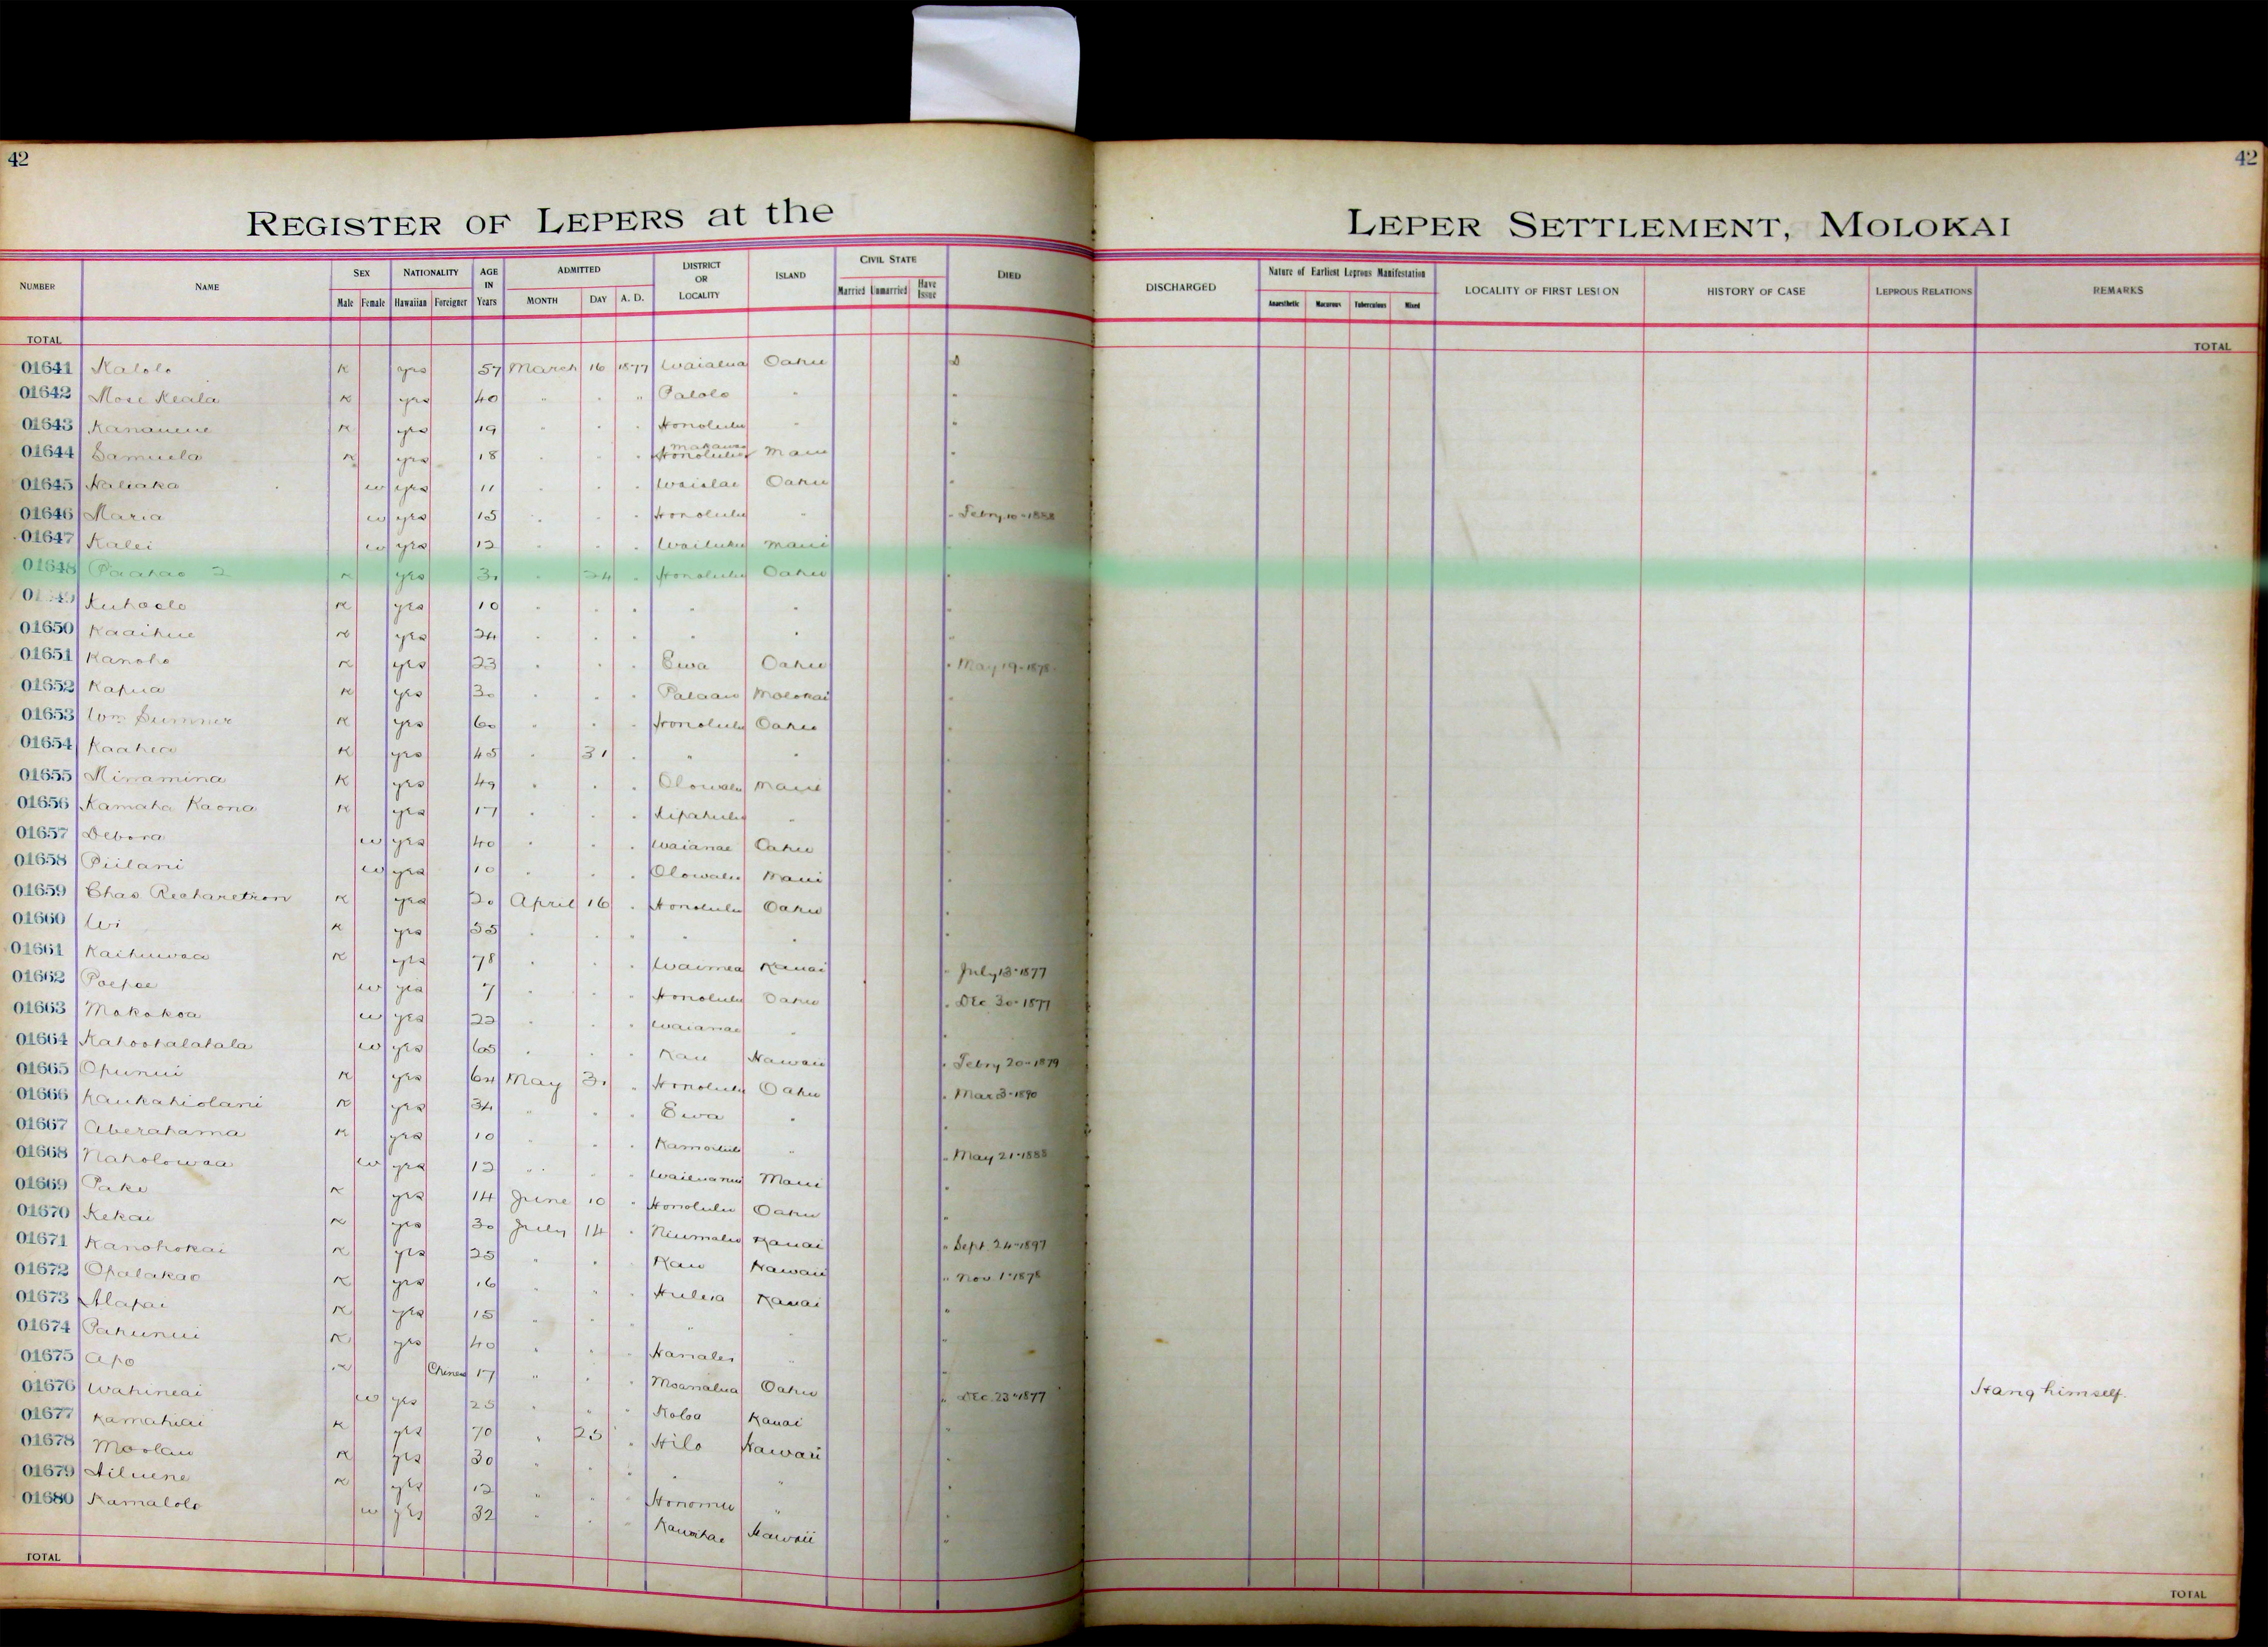 42
42
REGISTER OF LEPERS at the LEPER SETTLEMENT, MOLOKAI
NUMBER NAME SEX NATIONALITY AGE IN Years ADMITTED DISTRICT OR LOCALITY ISLAND CIVIL STATE DIED DISCHARGED Nature of Earliest Leprous Manifestation LOCALITY OF FIRST LESION HISTORY OF CASE LEPROUS RELATIONS REMARKS
Male Female Hawaiian Foreigner MONTH DAY A. D. Married Unmarried Have Issue Anaesthetic Macurous Tuberculous Mixed
TOTAL TOTAL
01641 Kalolo K yes 57 March 16 1877 Waialua Oahu D
01642 Mose Keala K yes 40 " " " Palolo " "
01643 Kananeue K yes 19 " " " Honolulu " "
01644 Samuela K yes 18 " " " Makawao Honolulu Maui "
01645 w yes 11 " " " Waialae Oahu "
01646 Maria w yes 15 " " " Honolulu " " Febry 10-1888
01647 Kalei w yes 12 " " " Wailuku Maui "
01648 Paahao 2 K yes 30 " 24 " Honolulu Oahu "
Kuhaelo K yes 10 " " " " " "
01650 Kaaihue K yes 24 " " " " " "
01651 Kanoho K yes 23 " " " Ewa Oahu " May 19-1878
01652 Kapua K yes 30 " " " Palaau Molokai "
01653 Wm Sumner K yes 60 " " " Honolulu Oahu "
01654 Kaahea K yes 45 " 31 " " " "
01655 Minamina K yes 49 " " " Olowalu Maui "
01656 Kamaha Kaona K yes 17 " " " Kipahulu " "
01657 Debora w yes 40 " " " Waianae Oahu "
01658 Piilani w yes 10 " " " Olowalu Maui "
01659 Chas Richaretson K yes 20 April 16 " Honolulu Oahu "
01660 Wi K yes 55 " " " " " "
01661 Kaihuwaa K yes 78 " " " Waimea Kauai " July 13-1877
01662 Poepoe w yes 7 " " " Honolulu Oahu " Dec 30-1877
01663 Makakoa w yes 22 " " " Waianae " "
01664 Kahoohalahala w yes 65 " " " Kau Hawaii " Febry 20-1879
01665 Opunui K yes 64 May 31 " Honolulu Oahu " Mar 3-1890
01666 Kaukahiolani K yes 34 " " " Ewa " "
01667 Aberahama K yes 10 " " " Kamoiliili " " May 21-1888
01668 Naholowaa w yes 12 " " " Wailuanui Maui "
01669 Pake K yes 14 June 10 " Honolulu Oahu "
01670 Kekai K yes 30 July 14 " Niumalu Kauai " Sept. 24-1897
01671 Kanohokai K yes 25 " " " Kau Hawaii " Nov 1-1878
01672 Opalakao K yes 16 " " " Huleia Kauai "
01673 Alapai K yes 15 " " " " " "
01674 Pahunui K yes 40 " " " Hanalei " "
01675 Apo K Chinese 17 " " " Moanalua Oahu " Dec. 23-1877 Hang himself.
01676 Wahineai w yes 25 " " " Koloa Kauai "
01677 Kamahiai K yes 70 " 25 " Hilo Hawaii "
01678 Moolau K yes 30 " " " " " "
01679 K yes 12 " " " Honomu " "
01680 Kamalolo w yes 32 " " " Kawaihae Hawaii "
TOTAL TOTAL